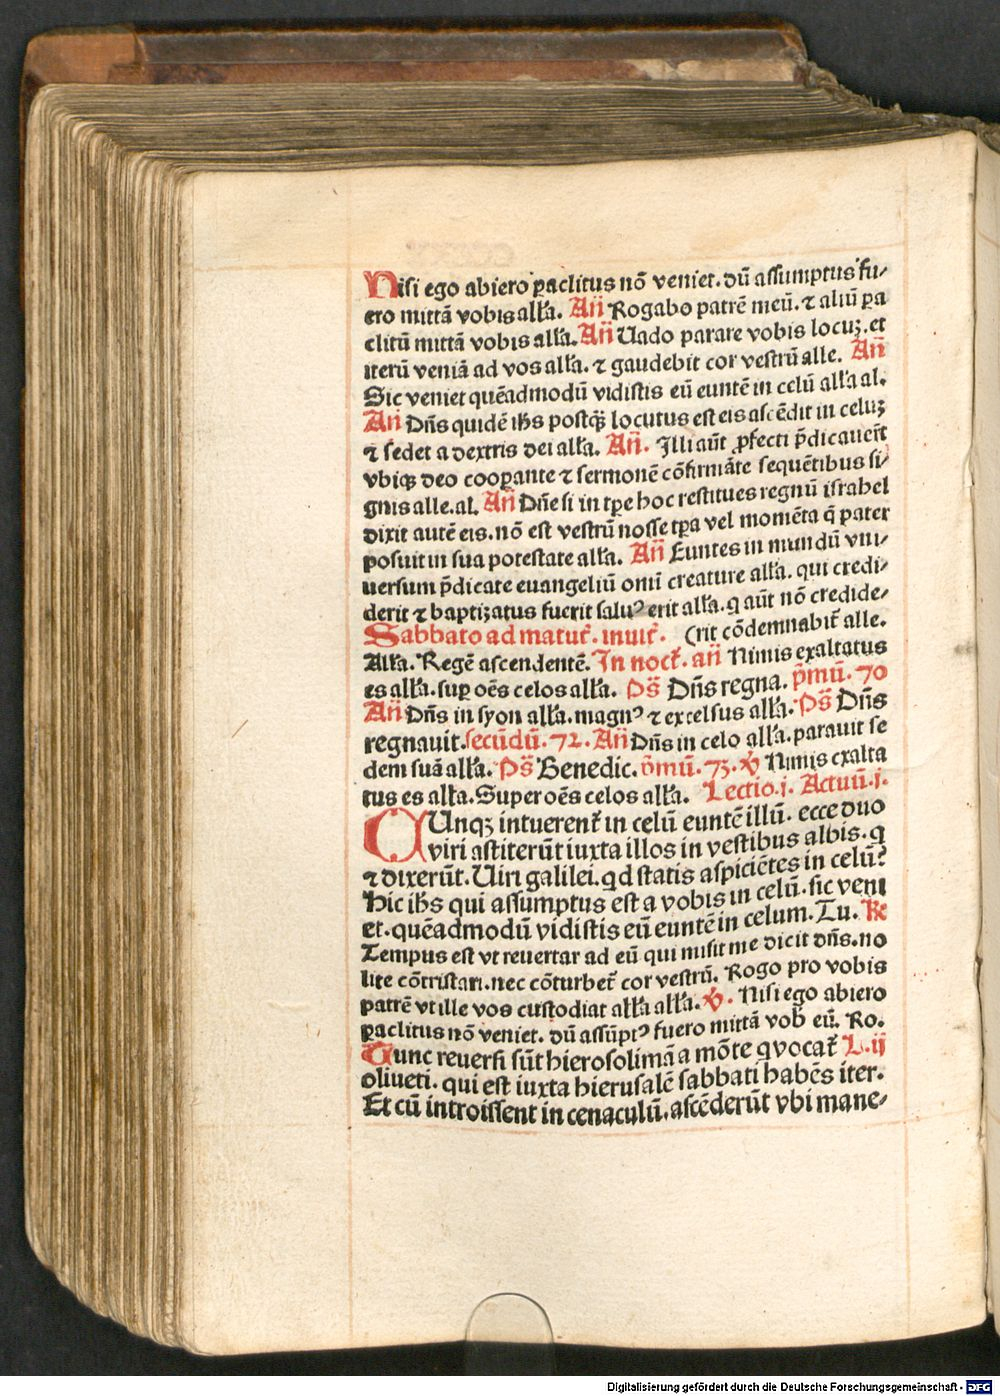 Nisi ego abiero ꝑaclitus nō veniet. dū assumptus fu-
ero mittā vobis alľa. Añ Rogabo patrē meū. ⁊ aliū ꝑa
clitū mittā vobis alľa. Añ Uado parare vobis locuꝫ. et
iterū veniā ad vos alľa. ⁊ gaudebit cor vestrū alle. Añ
Sic veniet quēadmodū vidistis eū euntē in celū alľa al.
Añ Dn̄s quidē ih̄s postqꝫ̄ locutus est eis ascēdit in celuꝫ
⁊ sedet a dextris dei alľa. Añ. Illi aūt ꝓfecti p̄dicauer̄t
vbiqꝫ deo cooꝑante ⁊ sermonē cōfirmāte sequētibus si-
gnis alle. al. Añ Dn̄e si in tp̄e hoc restitues regnū israhel
dixit autē eis. nō est vestrū nosse tp̄a vel momēta q̄ pater
posuit in sua potestate alľa. Añ Euntes in mundū vni-
uersum p̄dicate euangeliū omī creature alľa. qui credi-
derit ⁊ baptiȝatus fuerit saluꝰ erit alľa. q aūt nō credide-
Sabbato ad matut̄. inuit̄. (rit cōdemnabit̄ alle.
Alľa. Regē ascendentē. In noct̄. añ Nimis exaltatus
es alľa. suꝑ oēs celos alľa. Ps̄ Dn̄s regna. p̄mū. 70
Añ Dn̄s in syon alľa. magnꝰ ⁊ excelsus alľa. Ps̄ Dn̄s
regnauit. secūdū. 72. Añ Dn̄s in celo alľa. parauit se
dem suā alľa. Ps̄ Benedic. p̄mū. 73. ℣ Nimis exalta
tus es alľa. Super oēs celos alľa. Lectio. j. Actuū. j.
CUnqꝫ intuerent̄ in celū euntē illū. ecce duo
viri astiterūt iuxta illos in vestibus albis. q
⁊ dixerūt. Uiri galilei. qd statis aspiciētes in celū?
Hic ih̄s qui assumptus est a vobis in celū. sic veni
et. quēadmodū vidistis eū euntē in celum. Tu. ℞
Tempus est vt reuertar ad eū qui misit me dicit dn̄s. no
lite cōtristari. nec cōturbet̄ cor vestrū. Rogo pro vobis
patrē vt ille vos custodiat alľa alľa. ℣. Nisi ego abiero
ꝑaclitus nō veniet. dū assūptꝰ fuero mittā vob̄ eū. Ro.
Tunc reuersi sūt hierosolimā a mōte qvocat̄ L. ij
oliueti. qui est iuxta hierusalē sabbati habēs iter.
Et cū introissent in cenaculū. ascēderūt vbi mane-
Digitalisierung gefördert durch die Deutsche Forschungsgemeinschaft - DFG